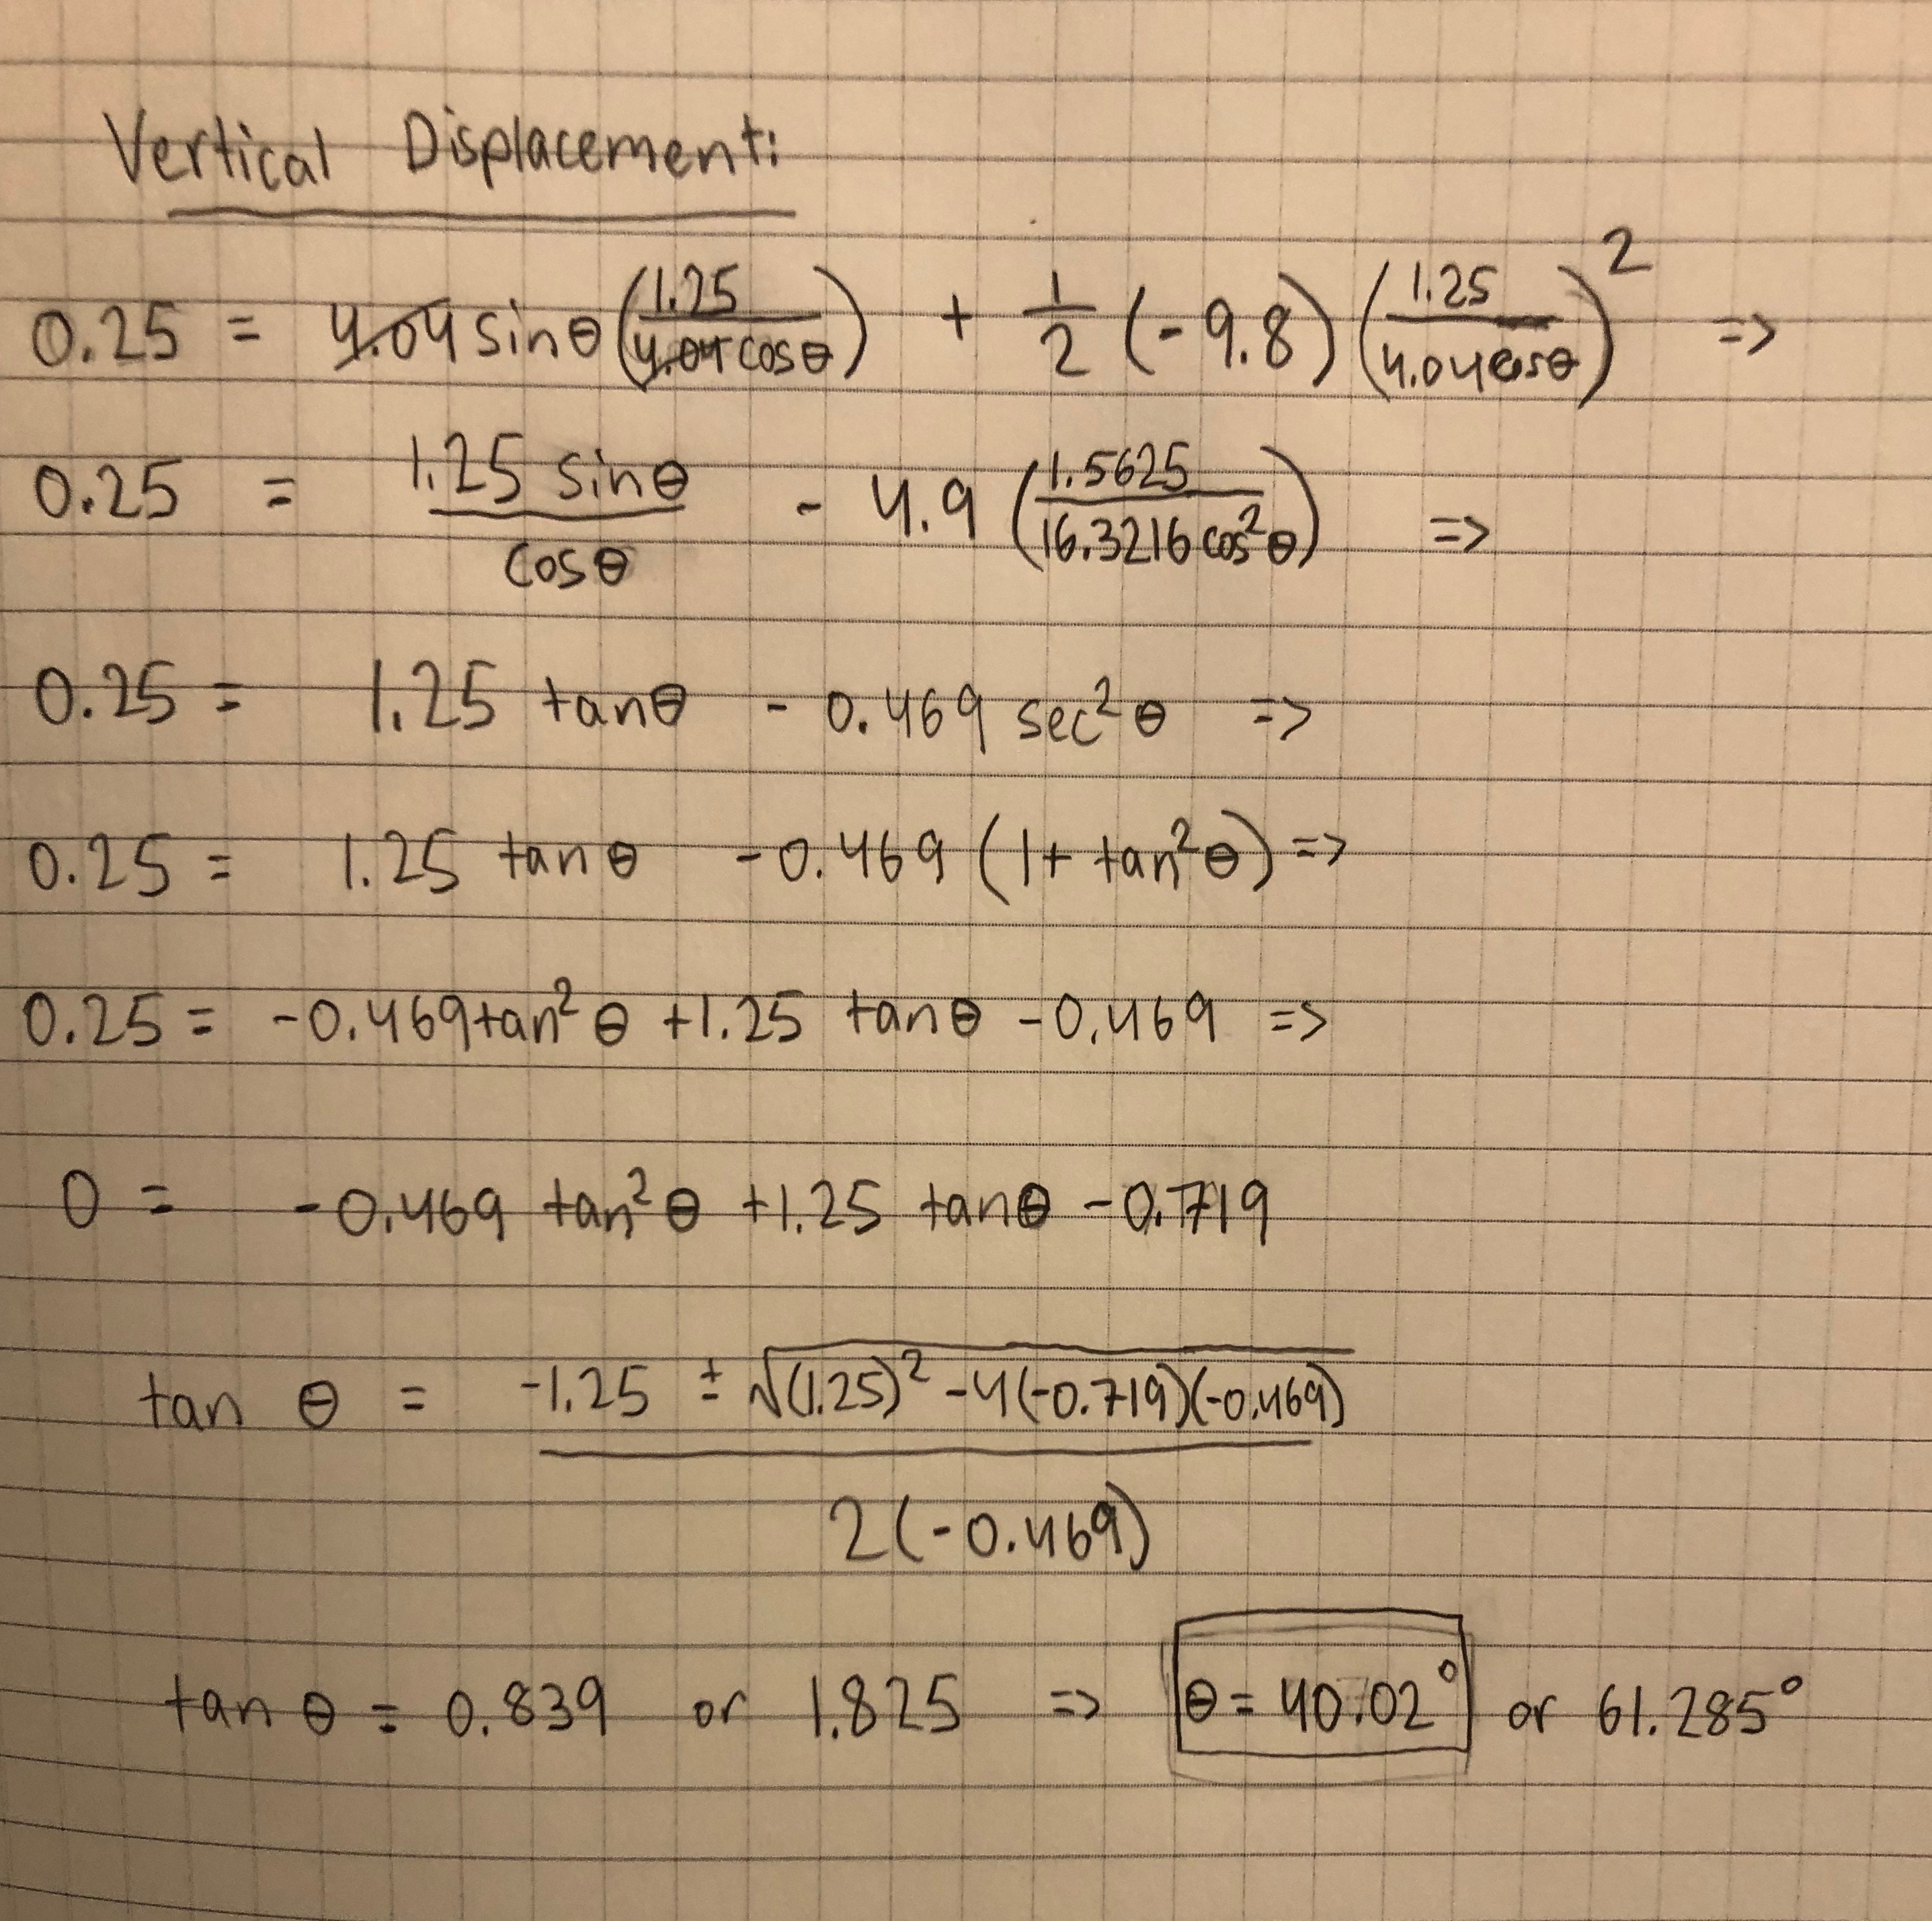 Vertical Displacement:
0.25 = 4.04 sinθ (1.25 / 4.04 cosθ) + 1/2 (-9.8) (1.25 / 4.04 cosθ)² =>
0.25 = 1.25 sinθ / cosθ - 4.9 (1.5625 / 16.3216 cos²θ) =>
0.25 = 1.25 tanθ - 0.469 sec²θ =>
0.25 = 1.25 tanθ -0.469 (1 + tan²θ) =>
0.25 = -0.469 tan²θ +1.25 tanθ -0.469 =>
0 = -0.469 tan²θ +1.25 tanθ -0.719
tan θ = -1.25 ± √(1.25)² -4(-0.719)(-0.469) / 2(-0.469)
tan θ = 0.839 or 1.825 => θ = 40.02° or 61.285°